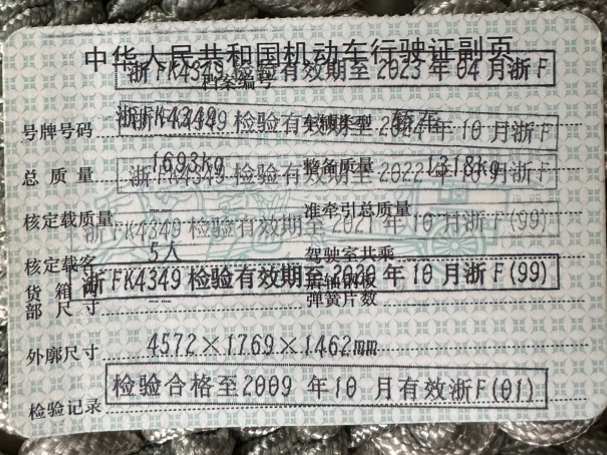 中华人民共和国机动车行驶证副页
浙FK4349 检验有效期至2023年04月浙F
档案编号
号牌号码 浙FK4349 车辆类型 轿车
浙FK4349 检验有效期至2024年10月浙F
总质量 1693kg 整备质量 1318kg
浙FK4349 检验有效期至2022年10月浙F
核定载质量 -- 准牵引总质量
浙FK4349 检验有效期至2021年10月浙F(99)
核定载客 5人 驾驶室共乘
浙FK4349 检验有效期至2020年10月浙F(99)
货箱内部尺寸 -- 后轴钢板弹簧片数
外廓尺寸 4572×1769×1462mm
检验合格至2009 年10 月有效浙F(01)
检验记录